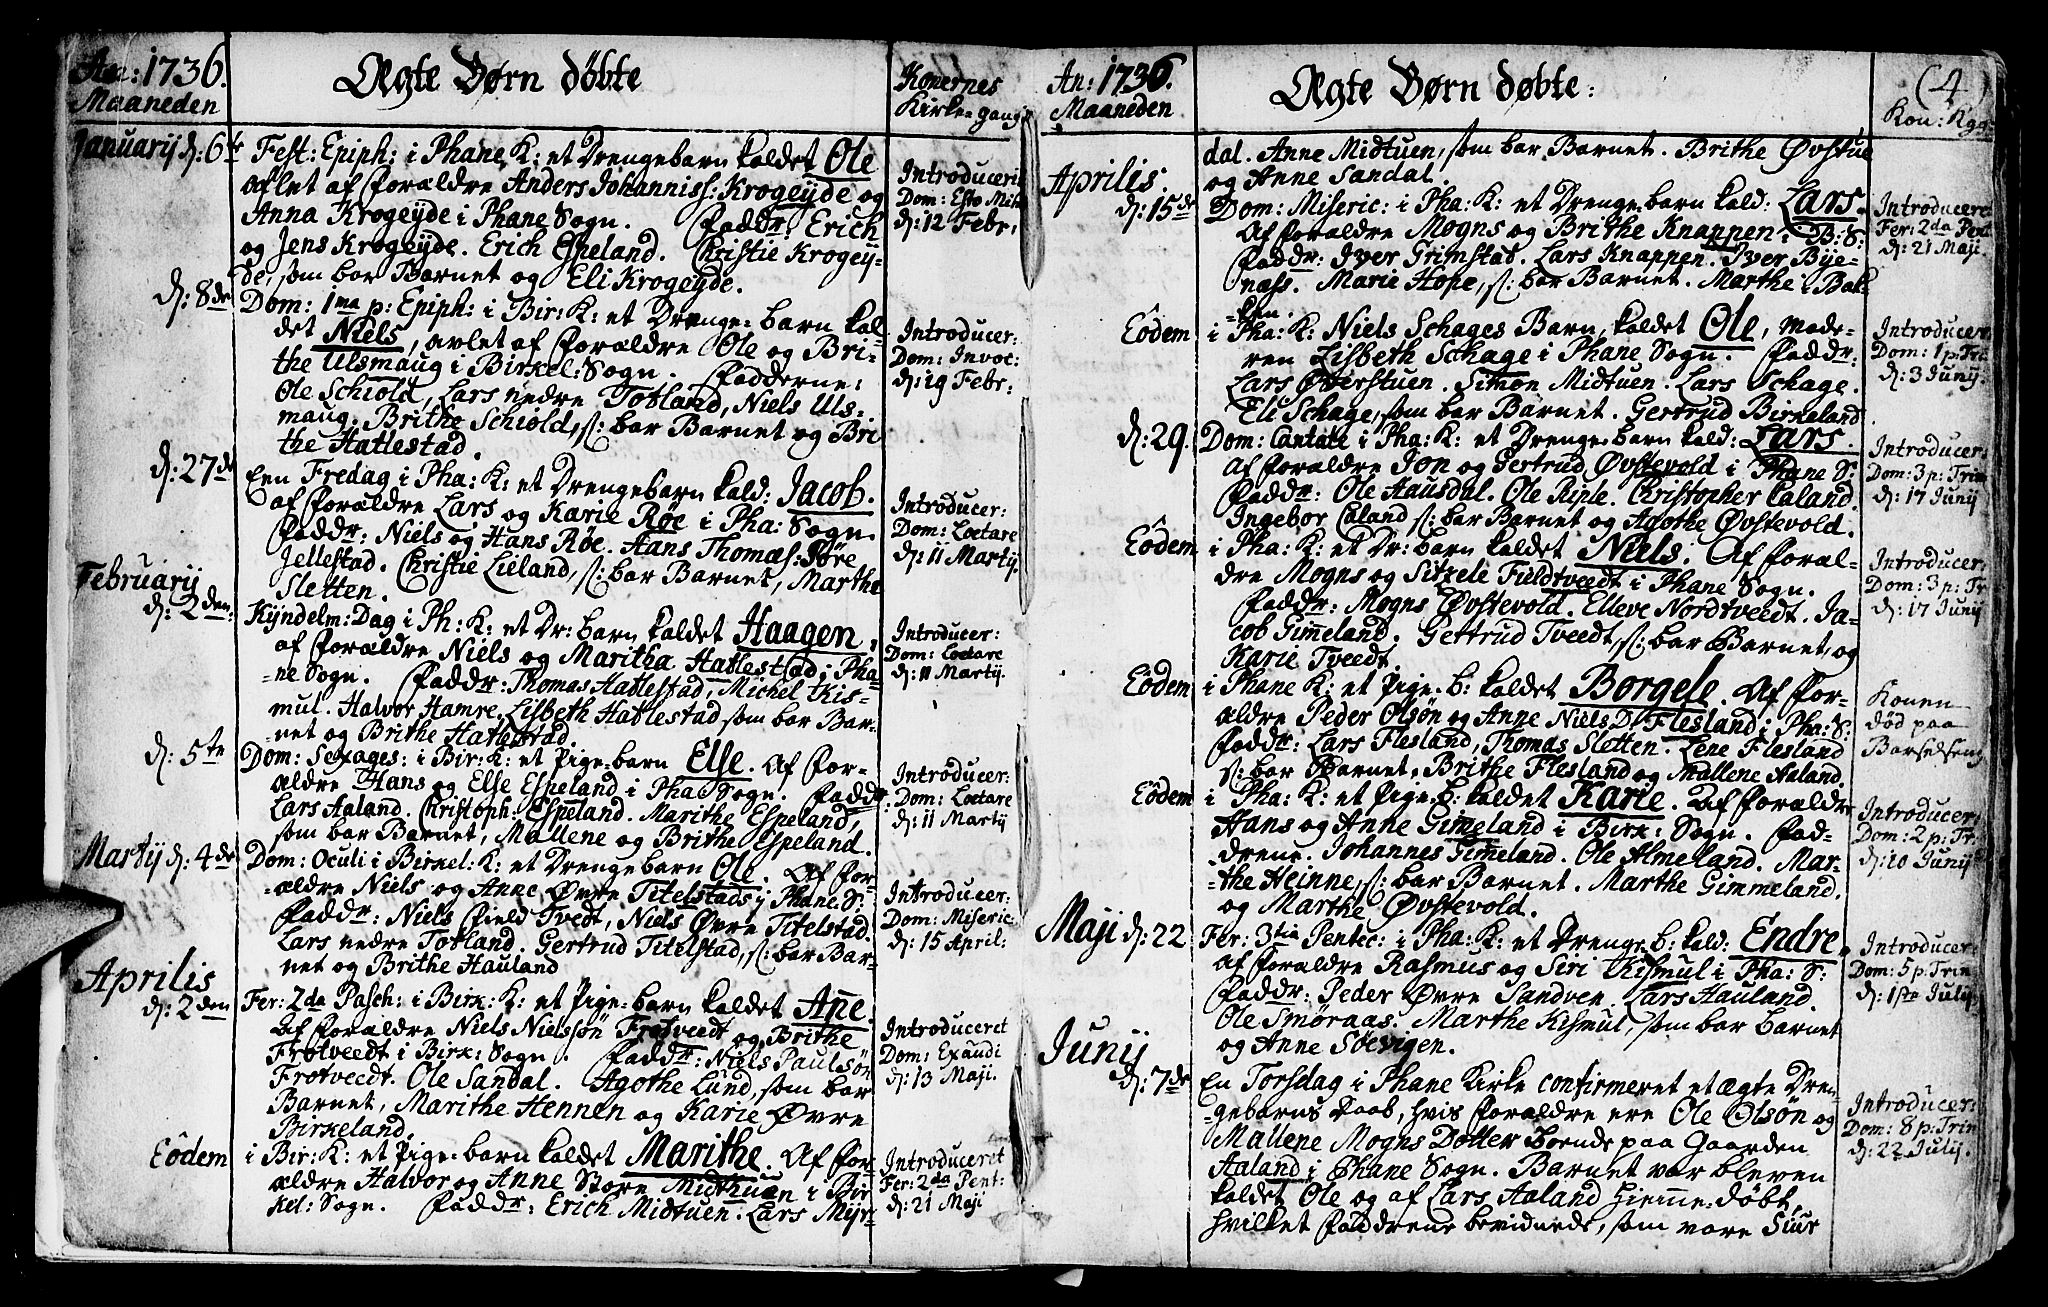 Ao: 1736.
Maaneden
Ægte Børn döbte
Konernes
Kirke-gang
Januarij d: 6te
Fest: Epiph: i Phane K: et Drengebarn kaldet Ole
aflet af Forældre Anders Johanniss: Krogeyde og
Anna Krogeyde i Phane Sogn. Faddr: Erich
og Jens Krogeyde. Erich Espeland. Christie Krogey-
de, som bar Barnet og Eli Krogeyde.
Introducer:
Dom: Esto Mihi
d: 12 Febr:
d: 8de
Dom: 1ma p: Epiph: i Bir: K: et Drenge-barn kal-
det Niels, avlet af Forældre Ole og Bri-
the Ulsmaug i Birkel: Sogn. Fadderne:
Ole Schiold, Lars nedre Totland, Niels Uls-
maug. Brithe Schiold, s: bar Barnet og Bri-
the Hatlestad.
Introducer:
Dom: Invoc:
d: 19 Febr:
d: 27de
Een Fredag i Pha: K: et Drengebarn kald: Jacob.
af Forældre Lars og Karie Røe i Pha: Sogn.
Faddr: Niels og Hans Røe. Hans Thomæs: Søre
Jellestad. Christie Lieland, s: bar Barnet, Marthe
Sletten.
Introducer:
Dom: Loetare
d: 11 Martij.
Februarij
d: 2den:
Kyndelm: Dag i Ph: K: et Dr: barn kaldet Haagen,
af Forældre Niels og Maritha Hatlestad i Pha-
-ne Sogn. Faddr: Thomas Hatlestad, Michel Kis-
mul. Halvor Hamre. Lisbeth Hatlestad som bar Bar-
-net og Brithe Hatlestad.
Introducer:
Dom: Loetare
d: 11 Martij.
d: 5te
Dom: Sexages: i Bir: K: et Pige-barn Else. Af For-
ældre Hans og Else Espeland i Pha: Sogn. Faddr:
Lars Aaland. Christoph: Espeland. Marithe Espeland,
som bar Barnet, Mallene og Brithe Espeland.
Introducer:
Dom: Loetare
d: 11 Martij
Martij d: 4de
Dom: Oculi i Birkel: K: et Drengebarn Ole. Af For-
-ældre Niels og Anne Øvre Titelstad i Phane S:
Faddr: Niels Field Tvedt, Niels Øvre Titelstad.
Lars nedre Totland. Gertrud Titelstad, s: bar Bar-
net og Brithe Hauland
Introducer:
Dom: Miseric:
d: 15 April:
Aprilis
d: 2den
Fer: 2da Pasch: i Birk: K: et Pige-barn kaldet Añe.
Af Forældre Niels Nielssön Frotveedt og Brithe
Frotveedt i Birk: Sogn. Faddr: Niels Paulsön
Frotveedt. Ole Sandal. Agothe Lund, som bar
Barnet, Marithe Hennen og Karie Øvre
Birkeland.
Introduceret
Dom: Exaudi
d: 13 Maji.
Eôdem
i Bir: K: et Pige-barn kaldet Marithe. Af For-
ældre Halvor og Anne Store Midtuen i Bir-
kel: Sogn. Faddr: Erich Midtuen. Lars Myr-
Introduceret
Fer: 2da Pent:
d: 21 Maji
An: 1736.
Maaneden
Ægte Børn døbte:
(4)
Kon: Kgg:
dal. Anne Midtuen, som bar Barnet. Brithe Øvstue
og Anne Sandal.
Aprilis:
d: 15de
Dom: Miseric: i Pha: K: et Drenge-barn kald: Lars.
Af Forældre Mogns og Brithe Knappen i B: S:
Faddr: Iver Grimstad. Lars Knappen. Iver Bye-
næss. Marie Hope, s: bar Barnet. Marthe i Bak-
-ken.
Introduceret
Fer: 2da Pent
d: 21 Maji.
Eôdem
i Pha: K: Niels Schages Barn, kaldet Ole, Mode-
ren Lisbeth Schage i Phane Sogn. Faddr:
Lars Øverstuen. Simon Midtuen. Lars Schage.
Eli Schage, som bar Barnet. Gertrud Birkeland
Introducer:
Dom: 1 p: Tri
d: 3 Junij.
d: 29.
Dom: Cantate i Pha: K: et Drenge-barn kald: Lars.
af Forældre Jon og Gertrud Øvstevold i Phane S:
Faddr: Ole Hausdal. Ole Riple. Christopher Caland.
Ingebor Caland s: bar Barnet og Agothe Øvstevold.
Introducer:
Dom: 3 p: Trin
d: 17 Junij
Eôdem
i Pha: K: et Dr: barn kaldet Niels. Af Foræl-
dre Mogns og Sitzele Fieldtveedt i Phane Sogn.
Faddr: Mogns Øvstevold. Elleve Nordtveedt. Ja-
cob Gimeland. Gertrud Tveedt, s: bar Barnet, og
Karie Tveedt.
Introducer:
Dom: 3 p: Tr
d: 17 Junij
Eôdem
i Phane K: et Pige-b: kaldet Borgele. Af For-
ældre Peder Olsön og Anne Niels D. Flesland i Pha: S:
Faddr: Lars Flesland, Thomas Sletten. Lene Flesland
s: bar Barnet, Brithe Flesland og Mallene Aaland.
Konen
død paa
Barselseng
Eôdem
i Pha: K: et Pige-b: kaldet Karie. Af Forældre
Hans og Anne Gimeland i Birk: Sogn. Fad-
drene. Johannes Gimeland. Ole Almeland. Mar-
-the Heinne, s: bar Barnet. Marthe Gimmeland.
og Marthe Øvstevold.
Introducer:
Dom: 2 p: Tr:
d: 10 Junij
Maji d: 22
Fer: 3tia Pentec: i Pha: K: et Drenge-b: kald: Endre.
af Forældre Rasmus og Siri Kismul i Pha: S:
Faddr: Peder Øvre Sandven. Lars Hauland.
Ole Smøraas. Marthe Kismul, som bar Barnet
og Anne Søevigen.
Introducer:
Dom: 5 p: Trin
d: 1ste Julij
Junij
d: 7de
En Torsdag i Phane Kirke confirmeret et ægte Dren-
-gebarns Daab, hvis Forældre ere Ole Olsön og
Mallene Mogns Dotter boende paa Gaarden
Aaland i Phane Sogn. Barnet var bleven
kaldet Ole og af Lars Aaland hieme-döbt,
hvilket Faddrene bevidnede, som vare Siur
Introducer:
Dom: 8 p: Trin
d: 22 Julij.